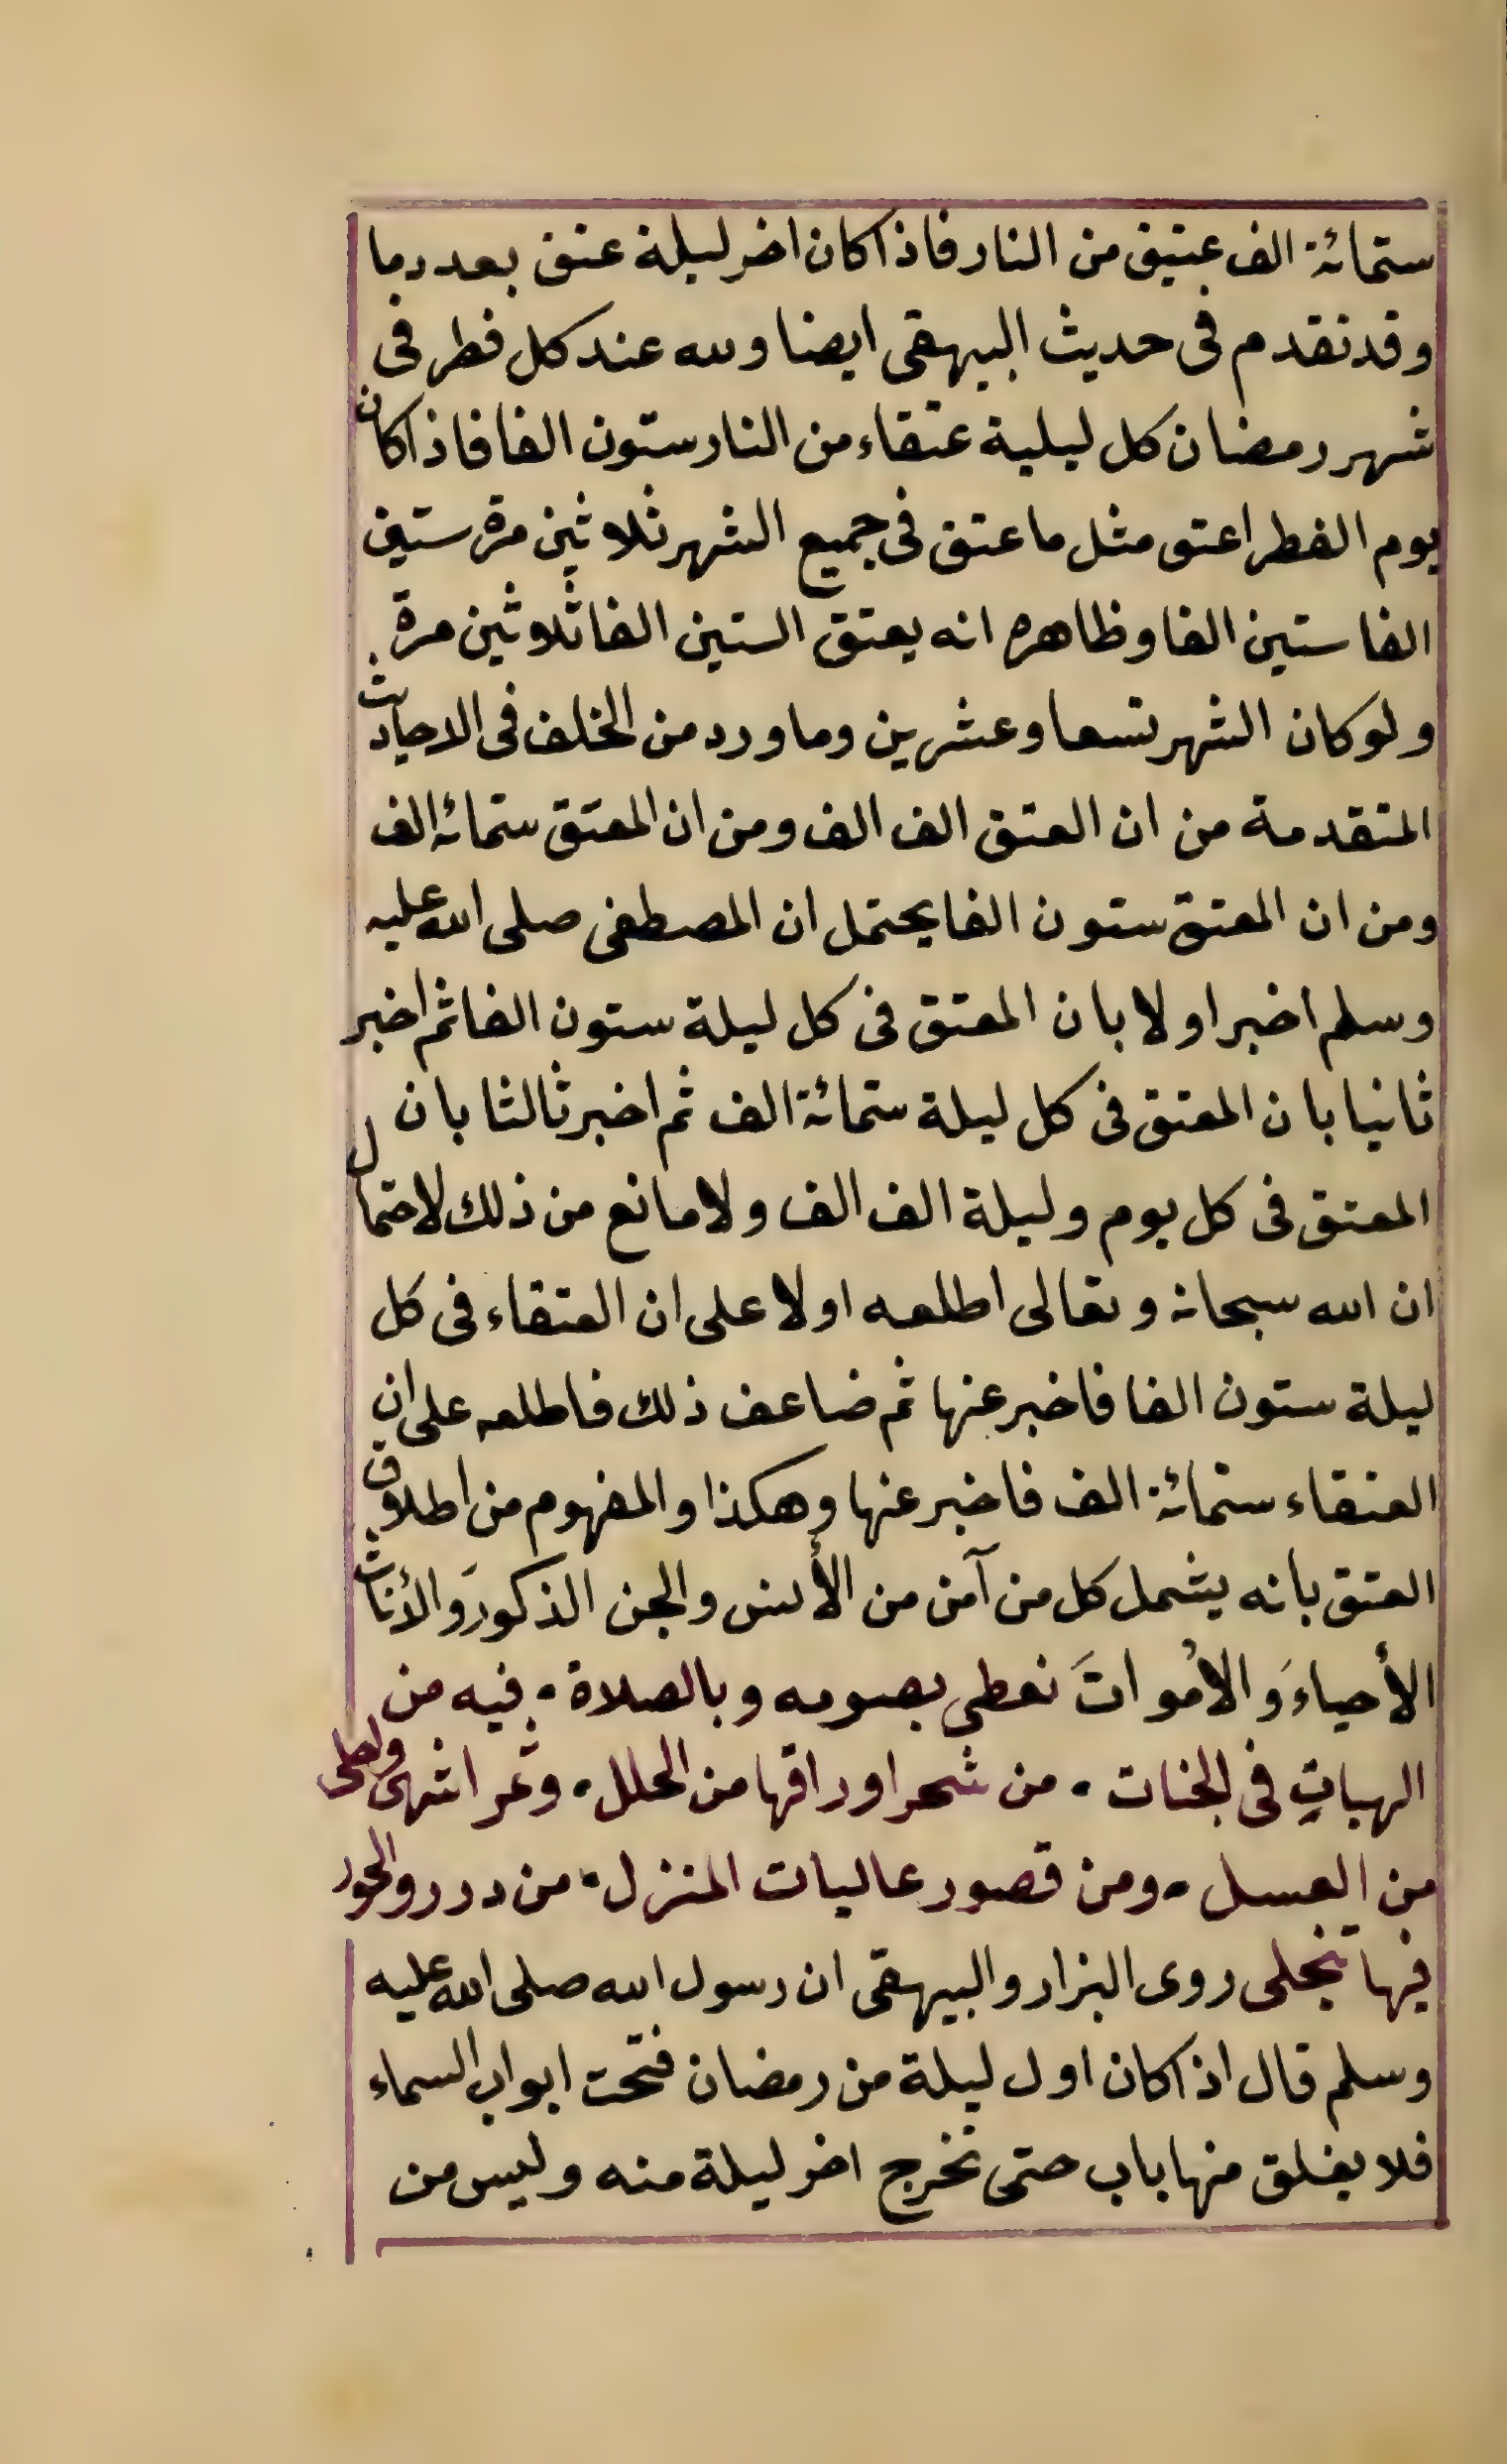 ستمائة الف عتيق من النار فاذا كان اخر ليلة عتق بعدد ما
وقد تقدم فى حديث البيهقى ايضا ولله عند كل فطر فى
شهر رمضان كل ليلية عتقاء من النار ستون الفا فاذا كان
يوم الفطر اعتق مثل ما عتق فى جميع الشهر ثلاثين مرة ستين
الفا ستين الفا وظاهره انه يعتق الستين الفا ثلاثين مرة
ولو كان الشهر تسعا وعشرين وما ورد من الخلف فى الاحاديث
المتقدمة من ان العتق الف الف ومن ان المعتق ستمائه الف
ومن ان المعتق ستون الفا يحتمل ان المصطفى صلى الله عليه
وسلم اخبر اولا بان المعتق فى كل ليلة ستون الفا ثم اخبر
ثانيا بان المعتق فى كل ليلة ستمائة الف ثم اخبر ثالثا بان
المعتق فى كل يوم وليلة الف الف ولا مانع من ذلك لاحتمال
ان الله سبحانه وتعالى اطلعه اولا على ان العتقاء فى كل
ليلة ستون الفا فاخبر عنها ثم ضاعف ذلك فاطلعه على ان
العتقاء ستمائة الف فاخبر عنها وهكذا والمفهوم من اطلاق
العتق بانه يشمل كل من آمن من الأنس والجن الذكورَ والأناث
الأحياءَ والأمواتَ نعطى بصومه وبالصلاة . فيه من
الهباتِ فى الجنات . من شجر اوراقها من الحلل . وثمر اشهى واحلى
من العسل . ومن قصور عاليات المنزل . من درر والحور
فيها تنجلى روى البزار والبيهقى ان رسول الله صلى الله عليه
وسلم قال اذا كان اول ليلة من رمضان فتحت ابواب السماء
فلا يغلق منها باب حتى تخرج اخر ليلة منه وليس من